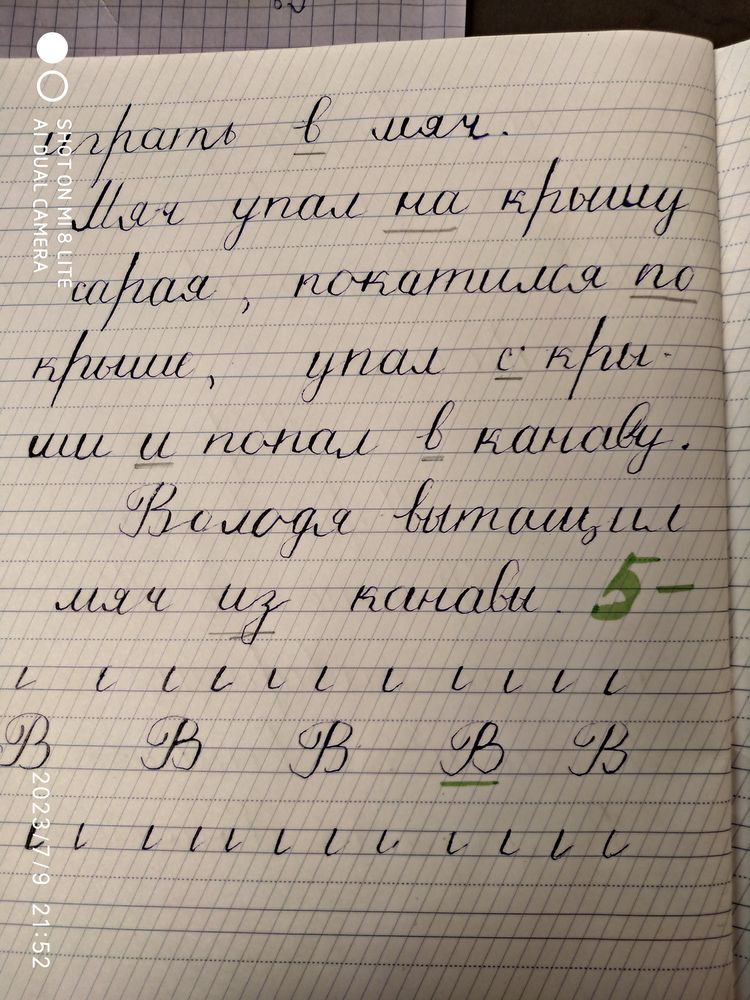 играть в мяч.
Мяч упал на крышу
сарая, покатился по
крыше, упал с кры-
ши и попал в канаву.
Володя вытащил
мяч из канавы. 5-
ι ι ι ι ι ι ι ι ι ι ι ι
В В В В В
ι ι ι ι ι ι ι ι ι ι ι ι
SHOT ON MI 8 LITE
AI DUAL CAMERA
2023/7/9 21:52